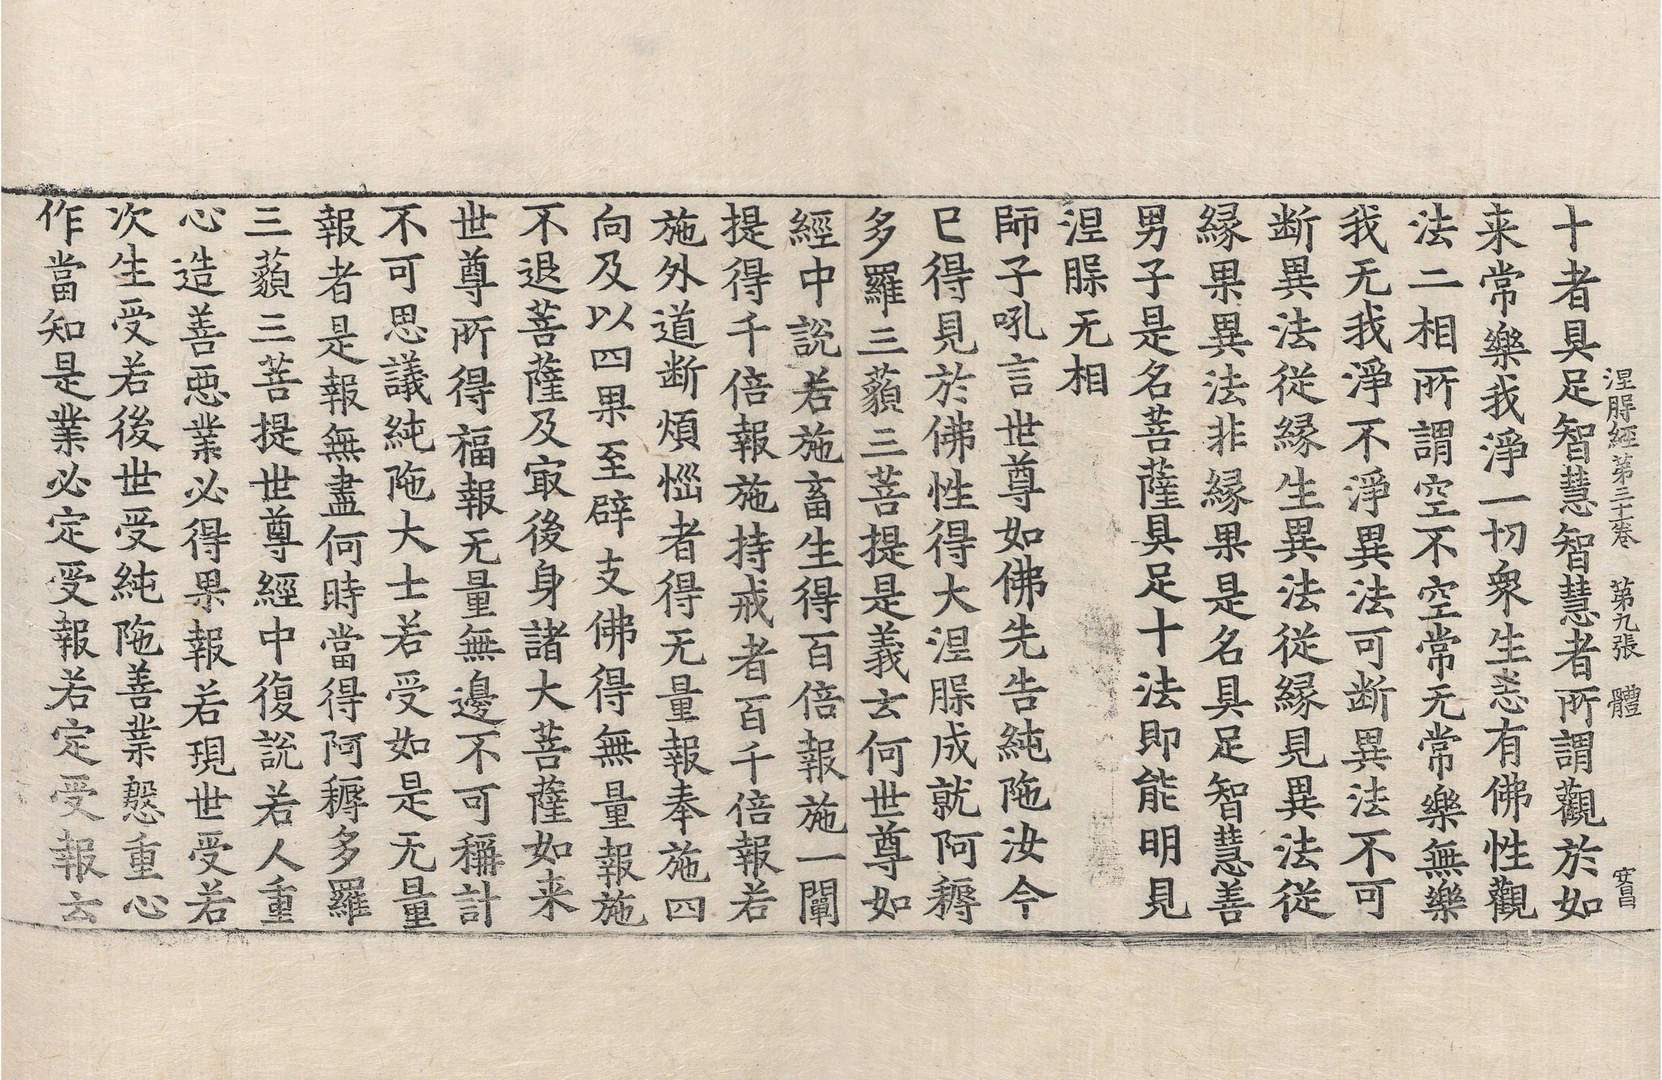 涅脬經第三十卷　第九張　體　安昌
十者具足智慧智慧者所謂觀於如
来常樂我淨一切衆生悉有佛性觀
法二相所謂空不空常无常樂無樂
我无我淨不淨異法可断異法不可
断異法從緣生異法從緣見異法從
緣果異法非緣果是名具足智慧善
男子是名菩薩具足十法即能明見
涅脬无相
師子吼言世尊如佛先告純陁汝今
已得見於佛性得大涅脬成就阿耨
多羅三藐三菩提是義云何世尊如
經中說若施畜生得百倍報施一闡
提得千倍報施持戒者百千倍報若
施外道断煩惱者得无量報奉施四
向及以四果至辟支佛得無量報施
不退菩薩及㝡後身諸大菩薩如来
世尊所得福報无量無邊不可稱計
不可思議純陁大士若受如是无量
報者是報無盡何時當得阿耨多羅
三藐三菩提世尊經中復說若人重
心造善惡業必得果報若現世受若
次生受若後世受純陁善業慇重心
作當知是業必定受報若定受報云